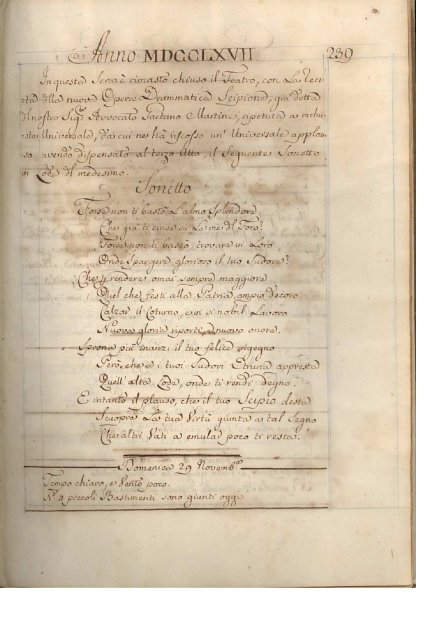 Anno MDCCLXVII 239
In questa Sera è rimasto chiuso il Teatro, con La Reci
ta della nuova Opera Drammatica Scipione, già dotta
del nostro Sigr Avvocato Gaetano Martini, ripetuta a richie
sta Universale, da cui ne hà riscosso un' Universale applau
so, avendo dispensato al terzo Atto, il Seguente Sonetto
in Lode del medesimo.
Sonetto
Forse non ti basta L'almo Splendore
Che già ti cinse su Le vie del Foro?
Forse non ti basta trovare in Loro
Onde Spargere glorioso il tuo Sudore?
Che ti rendere omai Sempre maggiore
Quel che festi alla Patria ampio decoro
Calzar il Coturno, e un sì nobil Lavoro
Nuova gloria riporti, e nuovo onore.
Sprona più innanzi il tuo felice ingegno
Perchè a i tuoi Sudori Etruria appresta
Quell' alta Lode, onde ti rendi degno.
E intanto il plauso, che il tuo Scipio desta
Scuopre La tua Virtù giunta a tal Segno
Che altri Vati a emular poco ti resta.
Domenica 29 Novembe
Tempo chiaro, e Vento poco.
N° 4 piccoli Bastimenti sono giunti oggi